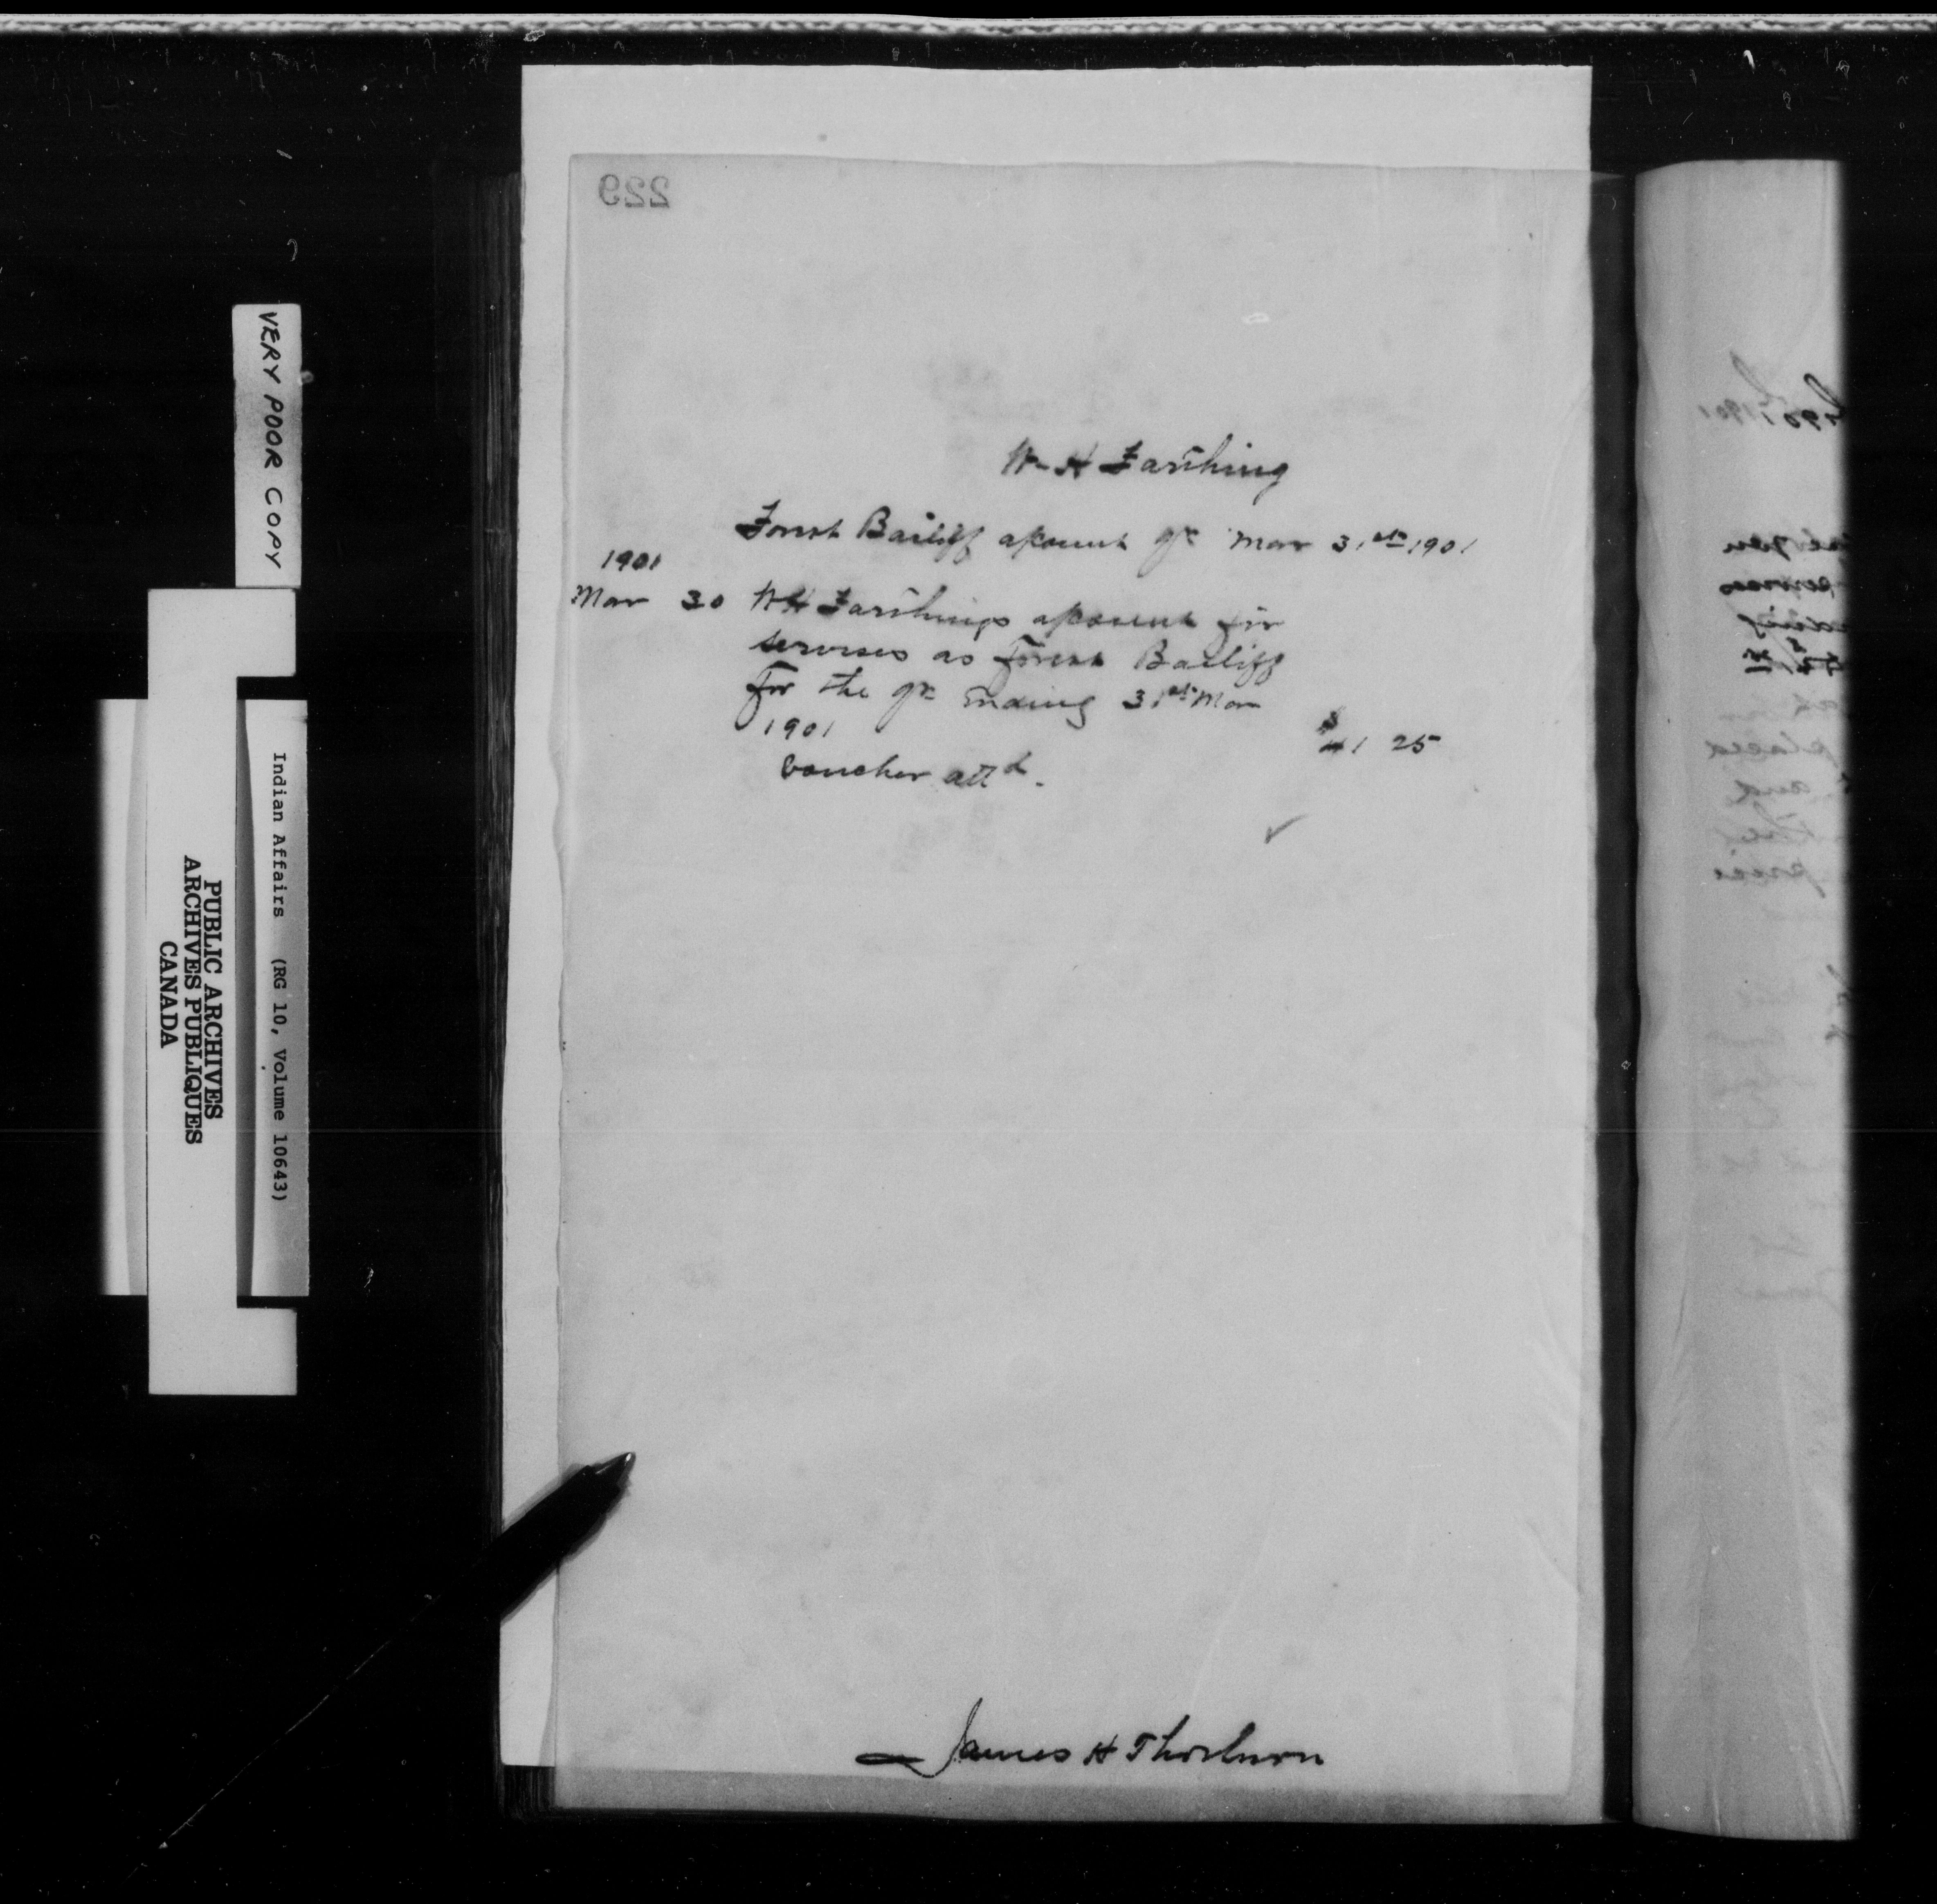 229
W H Farthing
Forest Bailiff account qr Mar 31st 1901
1901
Mar 30 WH Farthings account for
servises as Forest Bailiff
for the qr Ending 31st Mar
1901 $41 25
Voucher attd.
James H Thorburn
VERY POOR COPY
Indian Affairs (RG 10, Volume 10643)
PUBLIC ARCHIVES
ARCHIVES PUBLIQUES
CANADA